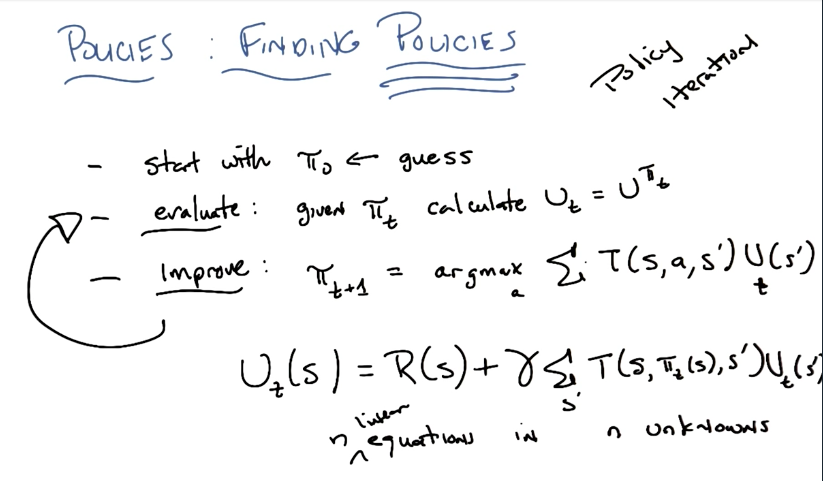 POLICIES : FINDING POLICIES
Policy
iteration
- start with π₀ ← guess
- evaluate: given πₜ calculate Uₜ = U^πₜ
- improve: πₜ₊₁ = argmaxₐ Σ T(s,a,s')Uₜ(s')
Uₜ(s) = R(s) + γ Σₛ' T(s,πₜ(s),s')Uₜ(s'
n linear equations in n unknowns